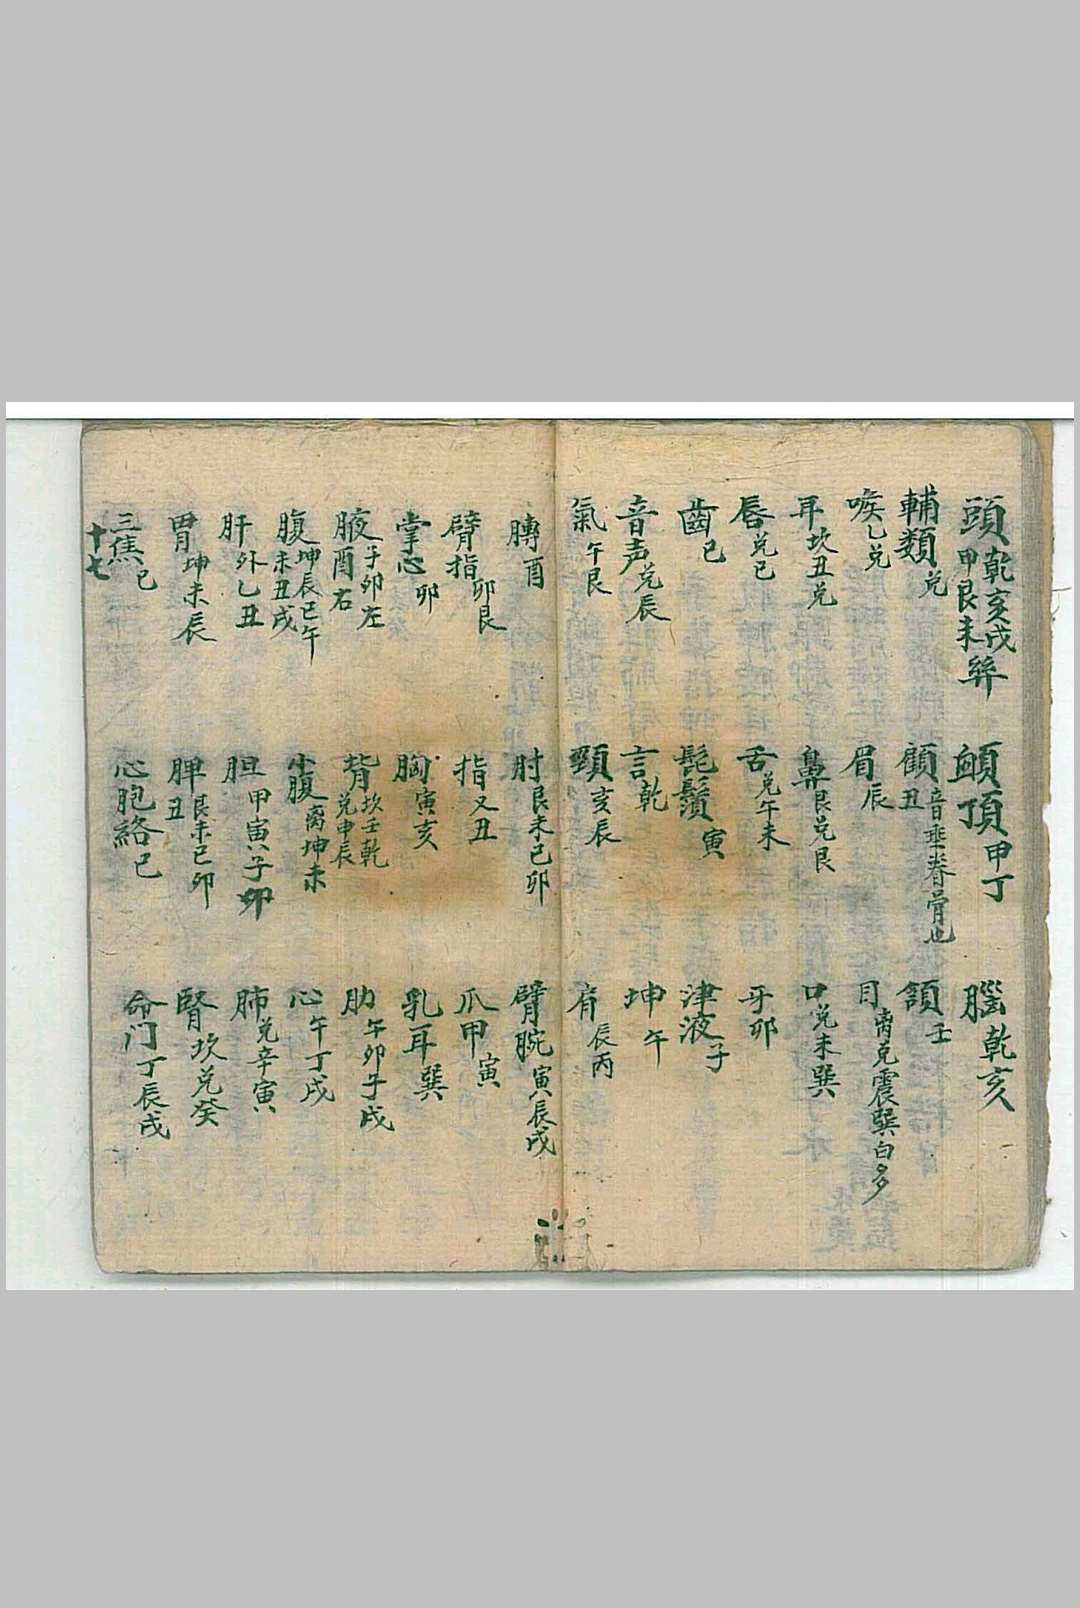 頭 乾亥戌 甲艮未 顖頂 甲丁 腦 乾亥
輔類 兑 顧 丑 音垂脊骨也 頷 壬
喉 乙兑 眉 辰 目 离 震巽白多
耳 坎丑兑 鼻 艮兑艮 口 兑未巽
唇 兑已 舌 兑午未 牙 卯
齒 已 髭鬚 寅 津液 子
音声 兑辰 言 乾 坤 午
氣 午艮 頸 亥辰 肩 辰丙
膊 酉 肘 艮未已卯 臂腕 寅辰戌
臂指 卯艮 指 又丑 爪甲 寅
掌心 卯 胸 寅亥 乳 耳巽
腋 子卯左 酉右 背 坎壬乾 兑申辰 肋 午卯子戌
腹 坤辰已午 未丑戌 小腹 离坤未 心 午丁戌
肝 外乙丑 胆 甲寅子卯 肺 兑辛寅
胃 坤未辰 脾 艮未已卯 丑 腎 坎兑癸
三焦 已 心胞絡 已 命门 丁辰戌
十七